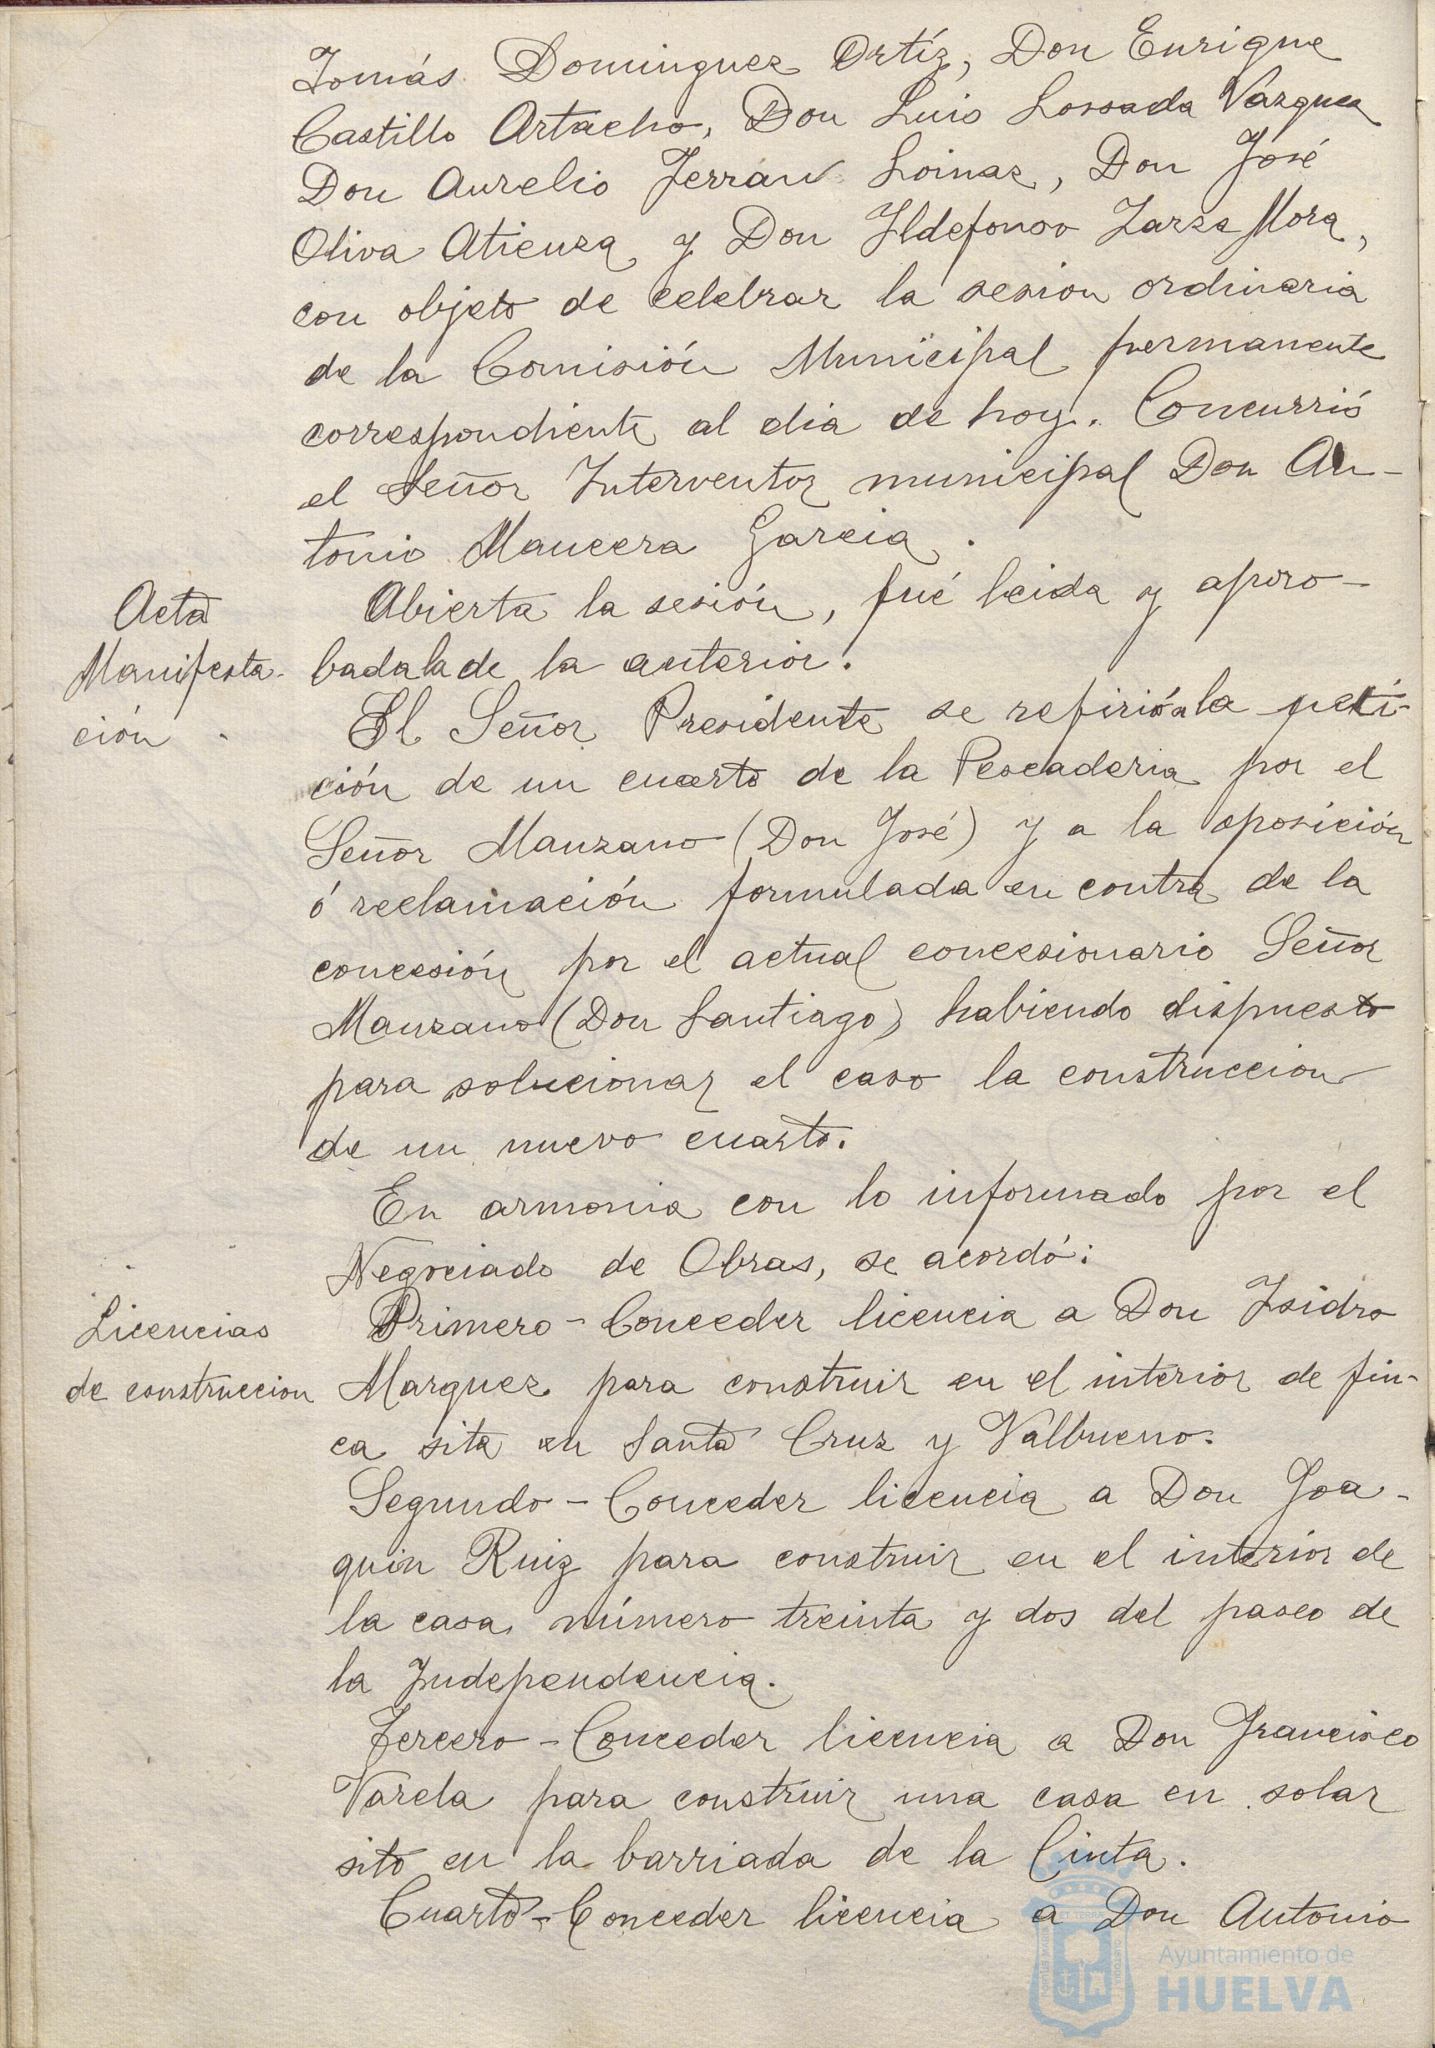 Tomás Dominguez Ortíz, Don Enrique
Castillo Artacho, Don Luis Lossada Vazquez
Don Aurelio Ferrán Loinaz, Don José
Oliva Atienza y Don Ildefonso Zarza Mora,
con objeto de celebrar la sesion ordinaria
de la Comisión Municipal permanente
correspondiente al dia de hoy. Concurrió
el Señor Interventor municipal Don An-
tonio Mancera Garcia.
Acta
Abierta la sesión, fué leida y apro-
badala de la anterior.
Manifesta-
ción
El Señor Presidente se refirió a la peti-
ción de un cuarto de la Pescaderia por el
Señor Manzano (Don José) y a la oposición
ó reclamación formulada en contra de la
concesión por el actual concesionario Señor
Manzano (Don Santiago) habiendo dispuesto
para solucionar el caso la construccion
de un nuevo cuarto.
En armonia con lo informado por el
Negociado de Obras, se acordó:
Licencias
de construccion
Primero - Conceder licencia a Don Isidro
Marquez para construir en el interior de fin-
ca sita en Santa Cruz y Valbueno.
Segundo - Conceder licencia a Don Joa-
quin Ruiz para construir en el interior de
la casa número treinta y dos del paseo de
la Independencia.
Tercero - Conceder licencia a Don Francisco
Varela para construir una casa en solar
sito en la barriada de la Cinta.
Cuarto - Conceder licencia a Don Antonio
Ayuntamiento de
HUELVA